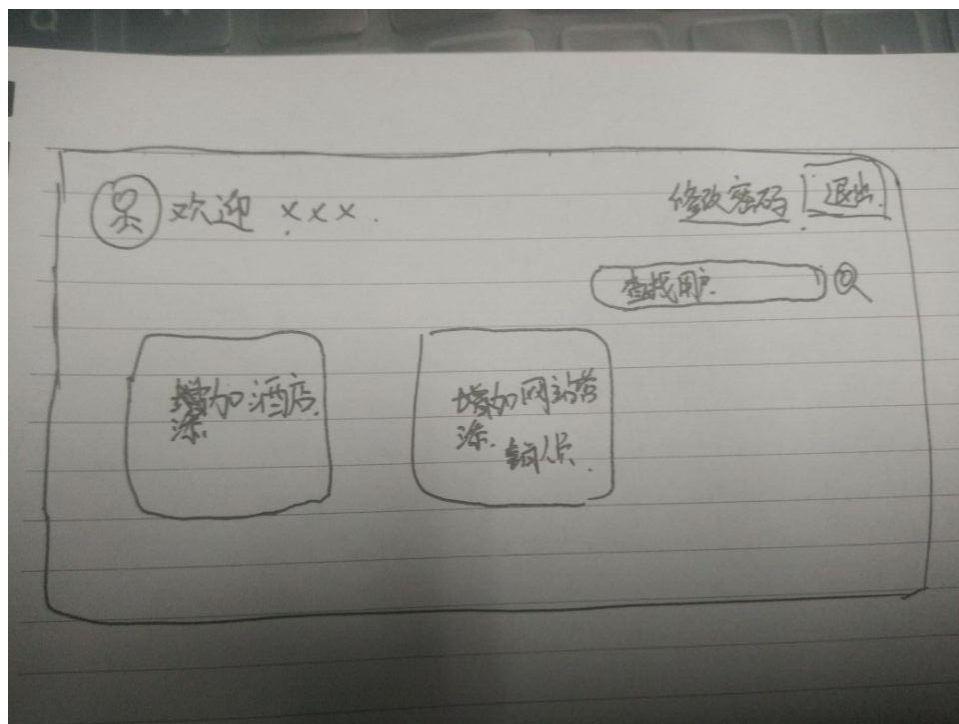 欢迎 ×××.
修改密码 退出
查找用户
增加酒店
添
增加网站营
销人员.
添.